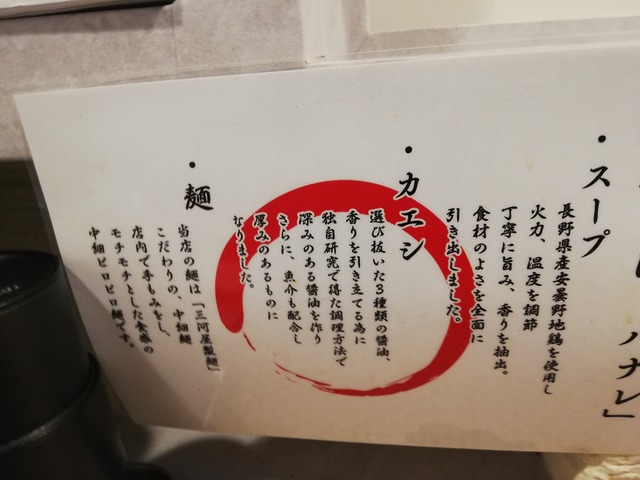 ハナレ」
・スープ
長野県産安曇野地鶏を使用し
火力、温度を調節
丁寧に旨み、香りを抽出。
食材のよさを全面に
引き出しました。
・カエシ
選び抜いた3種類の醤油、
香りを引き立てる為に
独自研究で得た調理方法で
深みのある醤油を作り
さらに、魚介も配合し
厚みのあるものに
なりました。
・麺
当店の麺は「三河屋製麺」
こだわりの、中細麺
店内で手もみをし、
モチモチとした食感の
中細ピロピロ麺です。